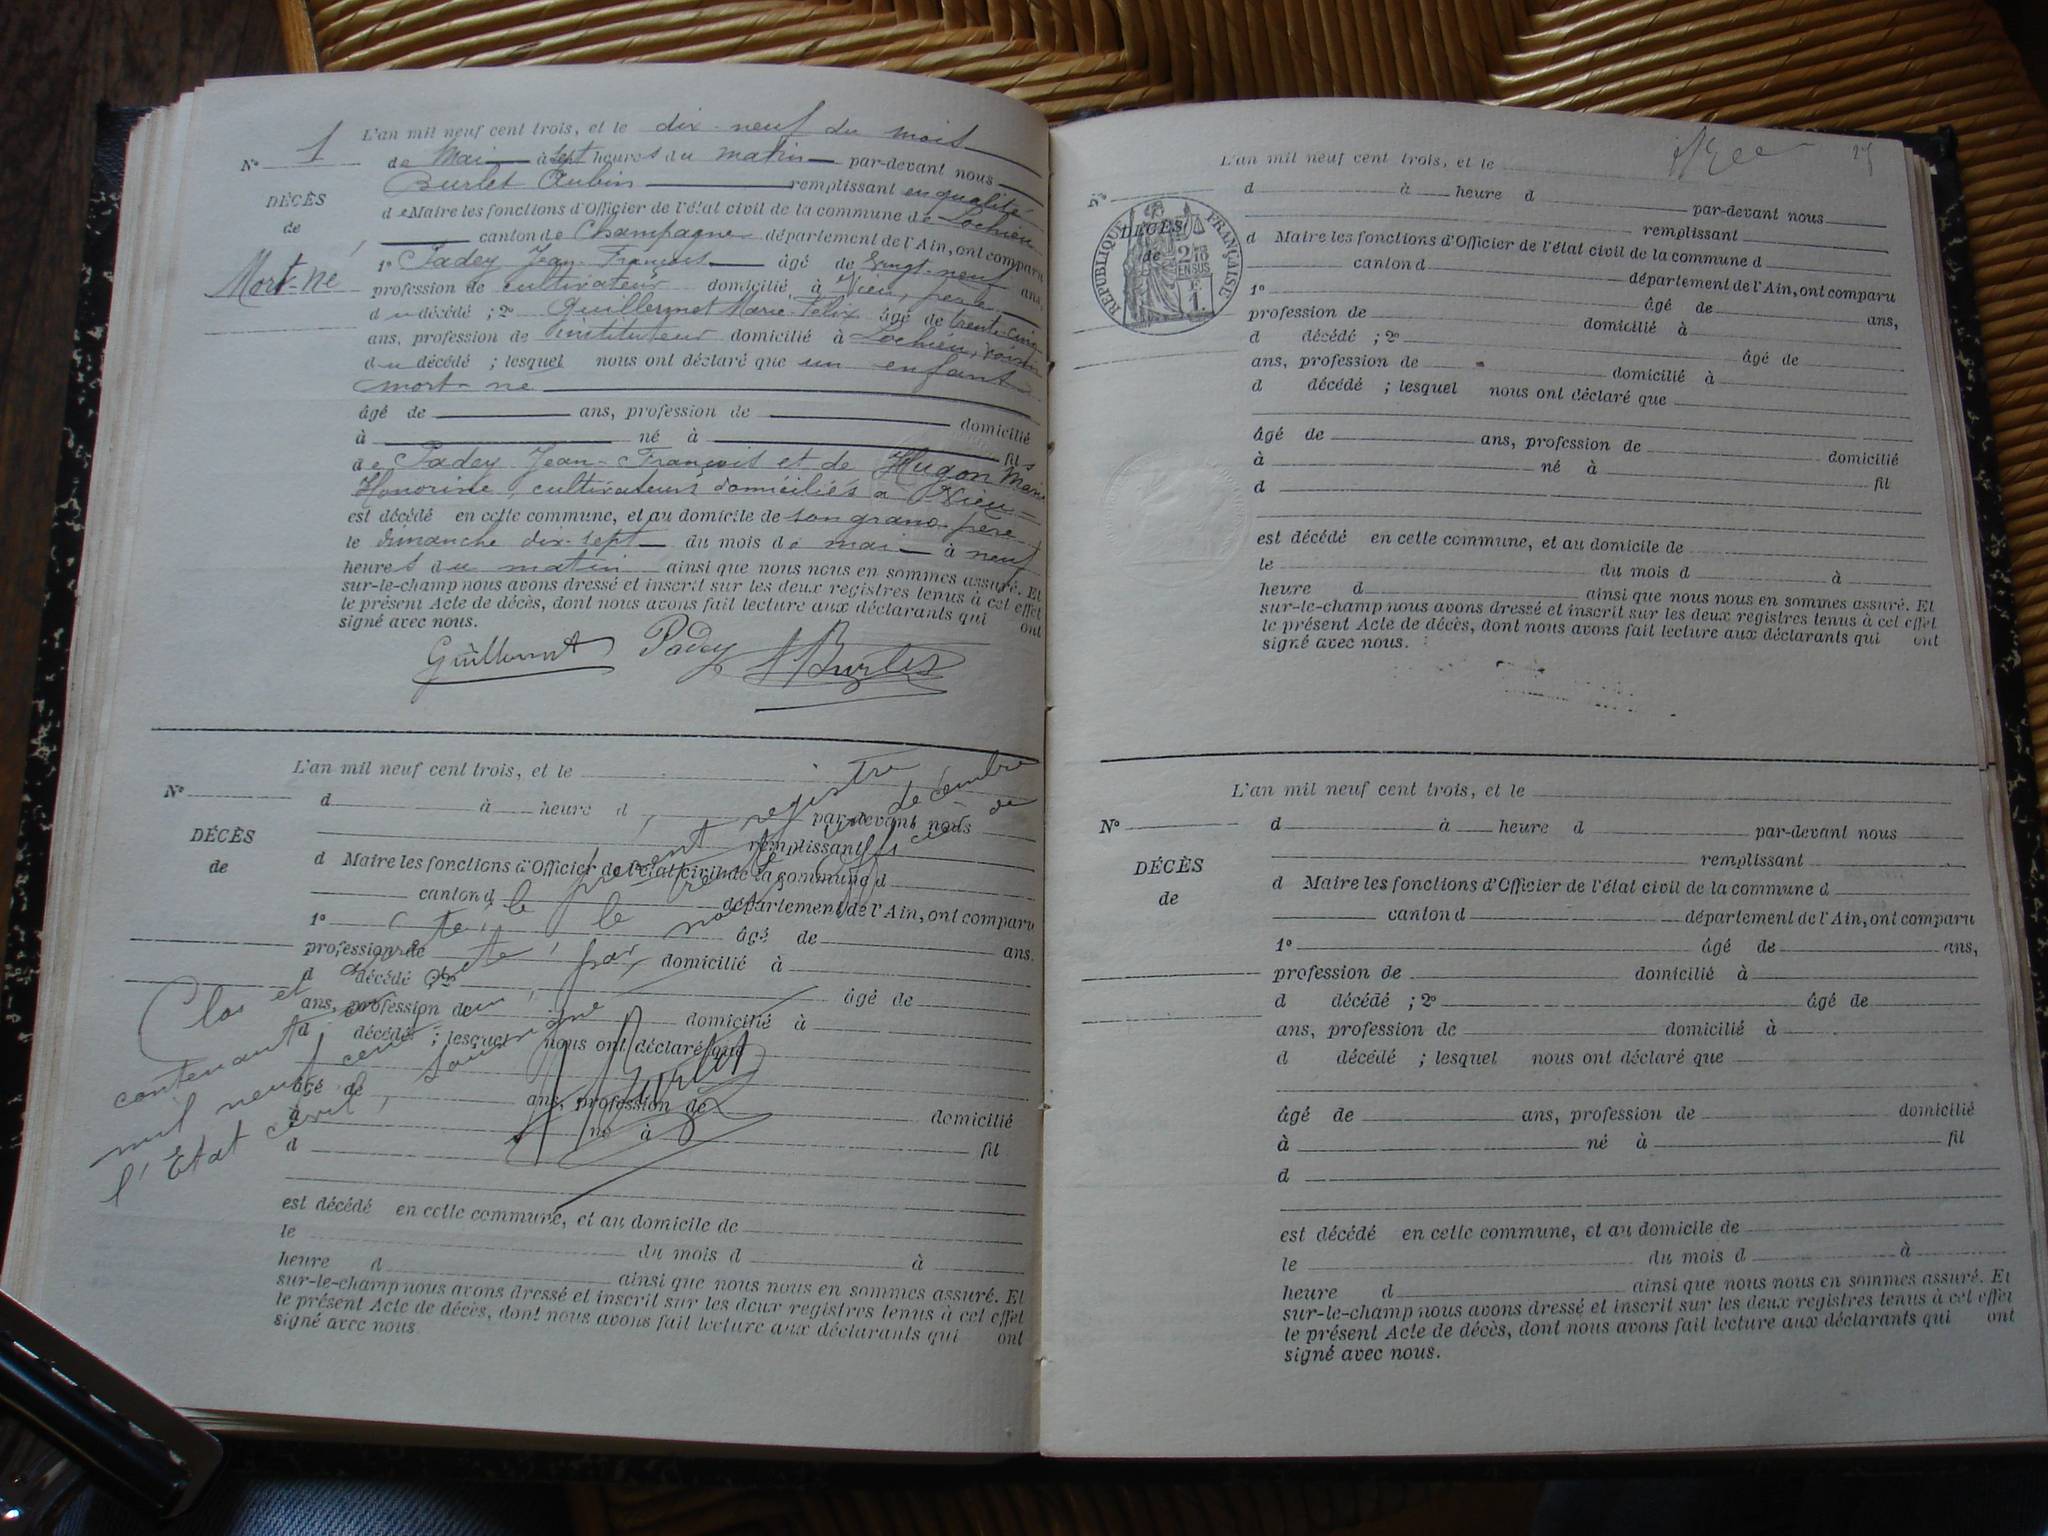 L'an mil neuf cent trois, et le dix-neuf du mois
N° 1
de Mai à sept heures du matin par-devant nous
Burlet Aubin remplissant en qualité
DÉCÈS
de Maire les fonctions d'Officier de l'état civil de la commune de Lochieu
de
canton de Champagne département de l'Ain, ont comparu
1° Padey Jean-François âgé de vingt-neuf ans,
Mort-né
profession de cultivateur domicilié à Vieu, père
du décédé ; 2° Guillermet Marie-Félix âgé de trente-cinq
ans, profession de Instituteur domicilié à Lochieu, voisin
du décédé ; lesquel nous ont déclaré que un enfant
mort-né
âgé de ans, profession de domicilié
à né à fils
de Padey Jean-François et de Hugon Marie
Honorine, cultivateurs domiciliés à Vieu
est décédé en cette commune, et au domicile de son grand-père
le dimanche dix-sept du mois de mai à neuf
heures du matin ainsi que nous nous en sommes assuré. Et
sur-le-champ nous avons dressé et inscrit sur les deux registres tenus à cet effet
le présent Acte de décès, dont nous avons fait lecture aux déclarants qui ont
signé avec nous.
Guillermet Padey Burlet
L'an mil neuf cent trois, et le
N°
d à heure d par-devant nous
remplissant
DÉCÈS
de
d Maire les fonctions d'Officier de l'état civil de la commune d
canton d département de l'Ain, ont comparu
1° âgé de ans,
profession de domicilié à
d décédé ; 2° âgé de
ans, profession de domicilié à
d décédé ; lesquel nous ont déclaré que
âgé de ans, profession de domicilié
à né à fil
d
est décédé en cette commune, et au domicile de
le du mois d à
heure d ainsi que nous nous en sommes assuré. Et
sur-le-champ nous avons dressé et inscrit sur les deux registres tenus à cet effet
le présent Acte de décès, dont nous avons fait lecture aux déclarants qui ont
signé avec nous.
Clos et le présent registre
contenant acte, le trente un décembre
mil neuf cent par nous, officier de
l'Etat civil, soussigné
Burlet
L'an mil neuf cent trois, et le
25
N°
d à heure d par-devant nous
remplissant
RÉPUBLIQUE FRANÇAISE
2/10 EN SUS
F. 1.
DÉCÈS
de
d Maire les fonctions d'Officier de l'état civil de la commune d
canton d département de l'Ain, ont comparu
1° âgé de ans,
profession de domicilié à
d décédé ; 2° âgé de
ans, profession de domicilié à
d décédé ; lesquel nous ont déclaré que
âgé de ans, profession de domicilié
à né à fil
d
est décédé en cette commune, et au domicile de
le du mois d à
heure d ainsi que nous nous en sommes assuré. Et
sur-le-champ nous avons dressé et inscrit sur les deux registres tenus à cet effet
le présent Acte de décès, dont nous avons fait lecture aux déclarants qui ont
signé avec nous.
L'an mil neuf cent trois, et le
N°
d à heure d par-devant nous
remplissant
DÉCÈS
de
d Maire les fonctions d'Officier de l'état civil de la commune d
canton d département de l'Ain, ont comparu
1° âgé de ans,
profession de domicilié à
d décédé ; 2° âgé de
ans, profession de domicilié à
d décédé ; lesquel nous ont déclaré que
âgé de ans, profession de domicilié
à né à fil
d
est décédé en cette commune, et au domicile de
le du mois d à
heure d ainsi que nous nous en sommes assuré. Et
sur-le-champ nous avons dressé et inscrit sur les deux registres tenus à cet effet
le présent Acte de décès, dont nous avons fait lecture aux déclarants qui ont
signé avec nous.